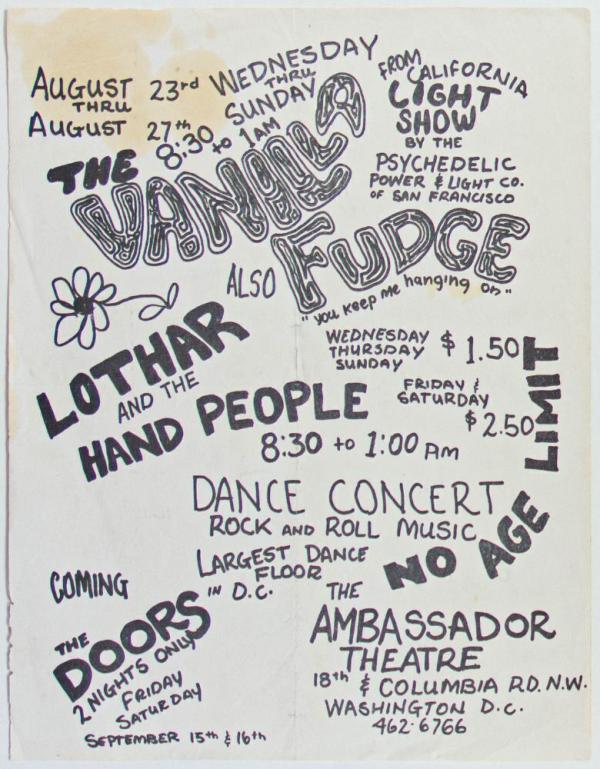 AUGUST 23rd
THRU
AUGUST 27th
WEDNESDAY
THRU
SUNDAY
8:30 to 1AM
FROM
CALIFORNIA
LIGHT
SHOW
BY THE
PSYCHEDELIC
POWER & LIGHT CO.
OF SAN FRANCISCO
THE
VANILLA
FUDGE
"you keep me hanging on"
ALSO
LOTHAR
AND THE
HAND PEOPLE
WEDNESDAY
THURSDAY
SUNDAY
$1.50
FRIDAY &
SATURDAY
$2.50
8:30 to 1:00 PM
NO AGE LIMIT
DANCE CONCERT
ROCK AND ROLL MUSIC
LARGEST DANCE
FLOOR
IN D.C.
COMING
THE
DOORS
2 NIGHTS ONLY
FRIDAY
SATURDAY
SEPTEMBER 15th & 16th
THE
AMBASSADOR
THEATRE
18th & COLUMBIA RD. N.W.
WASHINGTON D.C.
462-6766